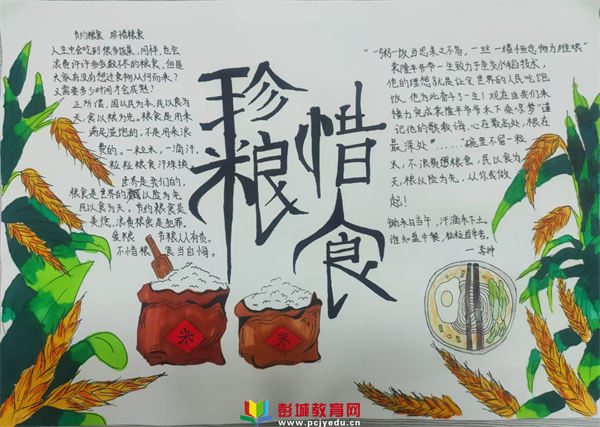 节约粮食 珍惜粮食
人生中会吃到很多饭菜,同样,也会
浪费许许多多数不尽的粮食,但是
大家有没有想过食物从何而来?
又需要多少时间才会成熟?
正所谓,国以民为本,民以食为
天,食以粮为先。粮食是用来
满足温饱的,不是用来浪
费的。一粒米,一滴汗,
粒粒粮食汗珠换
世界是我们的,
粮食是世界的 以俭为先
民以食为天,节约粮食是
美德,浪费粮食是犯罪。
爱粮 节粮人人有责。
不惜粮 食当自悔。
珍惜
粮食
米
米
“一粥一饭当思来之不易,一丝一缕恒念物力维艰”
袁隆平爷爷一生致力于杂交水稻技术,
他的理想就是让全世界的人民吃饱
饭,他为此奋斗了一生!现在由我们来
接力完成袁隆平爷爷禾下乘凉梦“谨
记他的教诲,心在最高处,根在
最深处”……“碗里不留一粒
米,不浪费 粮食,民以食为
天,粮以俭为先,从你我做
起!
锄禾日当午,汗滴禾下土。
谁知盘中餐,粒粒皆辛苦。
—李绅
彭城教育网
www.pcjyedu.cn